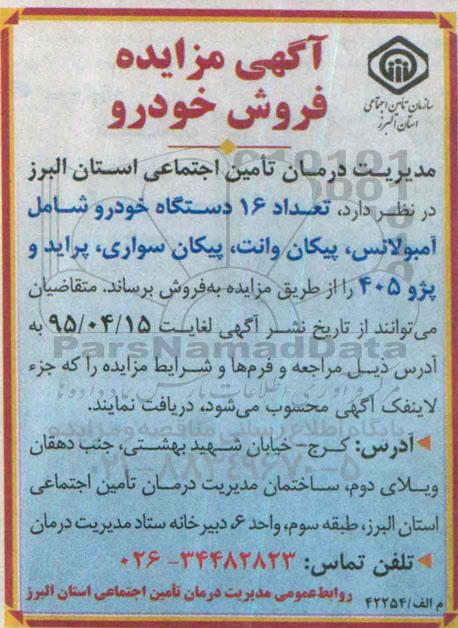 آگهی مزایده
فروش خودرو
سازمان تأمین اجتماعی
استان البرز
مدیریت درمان تأمین اجتماعی استان البرز
در نظر دارد، تعداد ۱۶ دستگاه خودرو شامل
آمبولانس، پیکان وانت، پیکان سواری، پراید و
پژو ۴۰۵ را از طریق مزایده به‌فروش برساند. متقاضیان
می‌توانند از تاریخ نشر آگهی لغایت ۹۵/۰۴/۱۵ به
آدرس ذیل مراجعه و فرم‌ها و شرایط مزایده را که جزء
لاینفک آگهی محسوب می‌شود، دریافت نمایند.
آدرس: کرج- خیابان شهید بهشتی، جنب دهقان
ویلای دوم، ساختمان مدیریت درمان تأمین اجتماعی
استان البرز، طبقه سوم، واحد ۶، دبیرخانه ستاد مدیریت درمان
تلفن تماس: ۳۴۴۸۲۸۲۳-۰۲۶
روابط‌عمومی مدیریت درمان تأمین اجتماعی استان البرز
م الف/۴۲۲۵۴
ParsNamadData
پایگاه اطلاع رسانی مناقصه و مزایده
۰۲۱-۸۸۳۴۹۶۷۰-۵